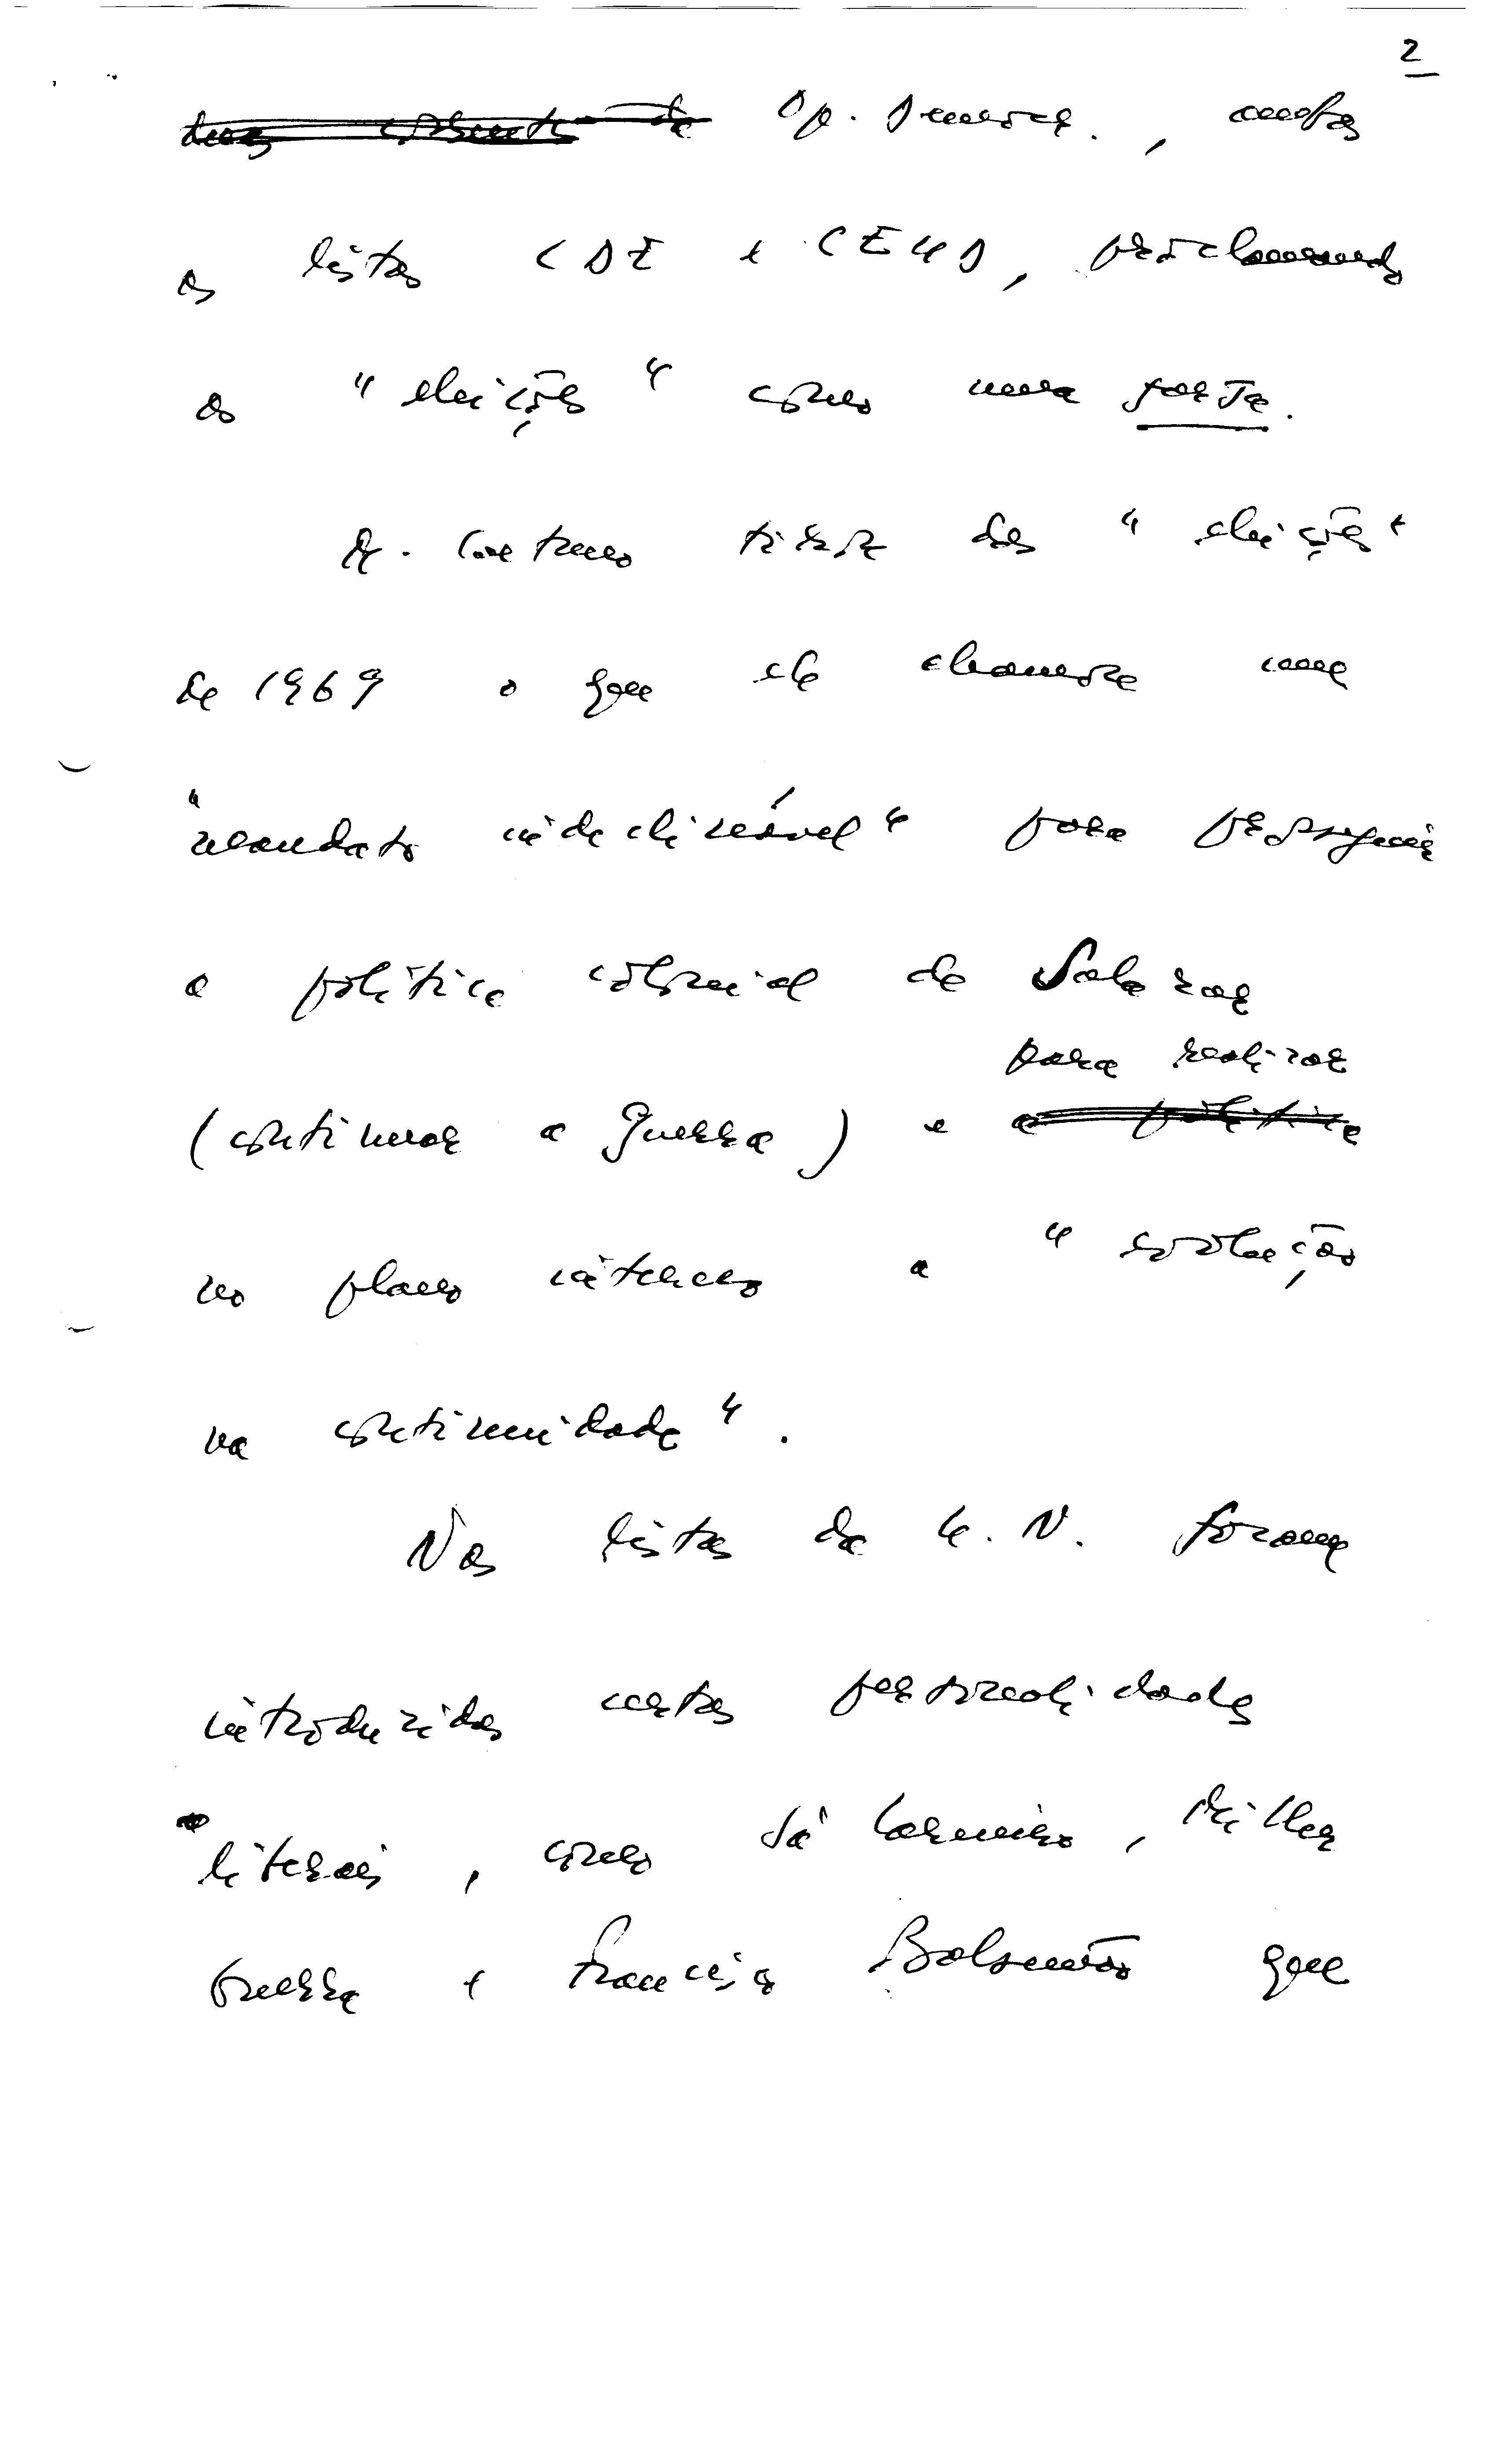 2
duas correntes da Op. Democr., ambas
as listas CDE e CEUD, proclamando
as "eleições" como uma farsa.
M. Caetano tirara das "eleições"
de 1969 o que ele chamara um
"mandato indeclinável" para prosseguir
a política colonial de Salazar
para realizar
(continuar a guerra) e a política
no plano interno a "evolução
na continuidade".
Nas listas da U.N. foram
introduzidas certas personalidades
liberais, como Sá Carneiro, Miller
Guerra e Francisco Balsemão que